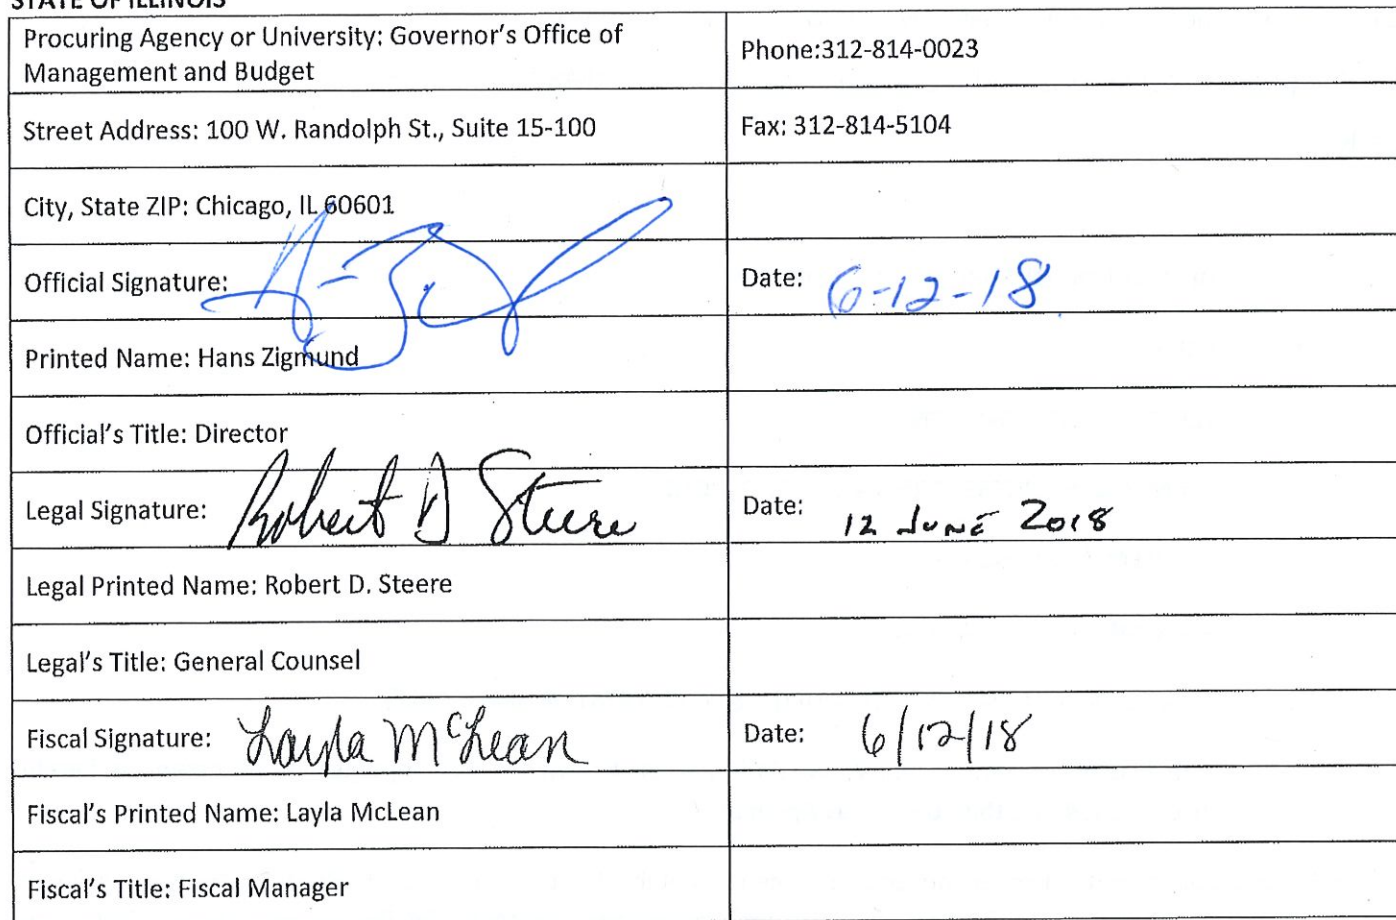 STATE OF ILLINOIS
Procuring Agency or University: Governor's Office of
Management and Budget
Phone:312-814-0023
Street Address: 100 W. Randolph St., Suite 15-100
Fax: 312-814-5104
City, State ZIP: Chicago, IL 60601
Official Signature:
Date: 6-12-18
Printed Name: Hans Zigmund
Official's Title: Director
Legal Signature: Robert D Steere
Date: 12 JUNE 2018
Legal Printed Name: Robert D. Steere
Legal's Title: General Counsel
Fiscal Signature: Layla McLean
Date: 6/12/18
Fiscal's Printed Name: Layla McLean
Fiscal's Title: Fiscal Manager